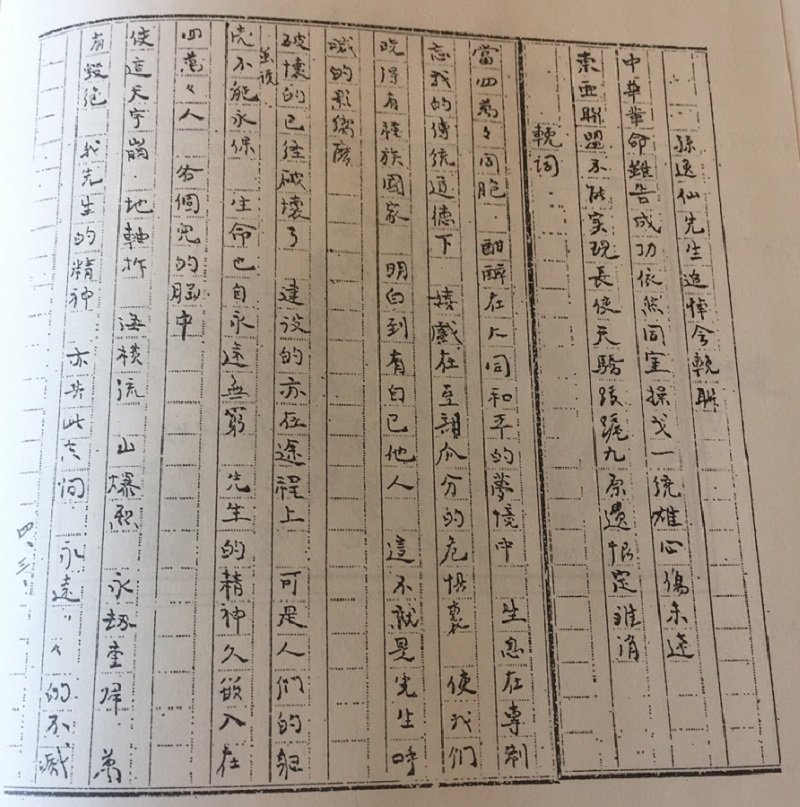 孫逸仙先生追悼会輓聯
中華革命雖告成功依然同室操戈一統雄心傷未達
東亜聯盟不能実現長使天驕跋踄九原遺恨定难消
輓词
當四萬々同胞 酣醉在大同和平的夢境中 生息在專制
忘我的傳統道德下 嬉戲在瓜分的危惧裏 使我们
晓得有種族國家 明白到有自已他人 這不就是先生呼
喊的影響麼
破壞的已往破壞了 建设的亦在途程上 可是人们的躯
虽说
壳不能永保 生命也自永遠無窮 先生的精神久嵌入在
四萬々人 各個兒的腦中
使這天宇崩 地軸拆 海橫流 山爆烈 永劫重歸 萬
有毀絕 我先生的精神 亦共此世间 永遠々々的不滅
四、三、